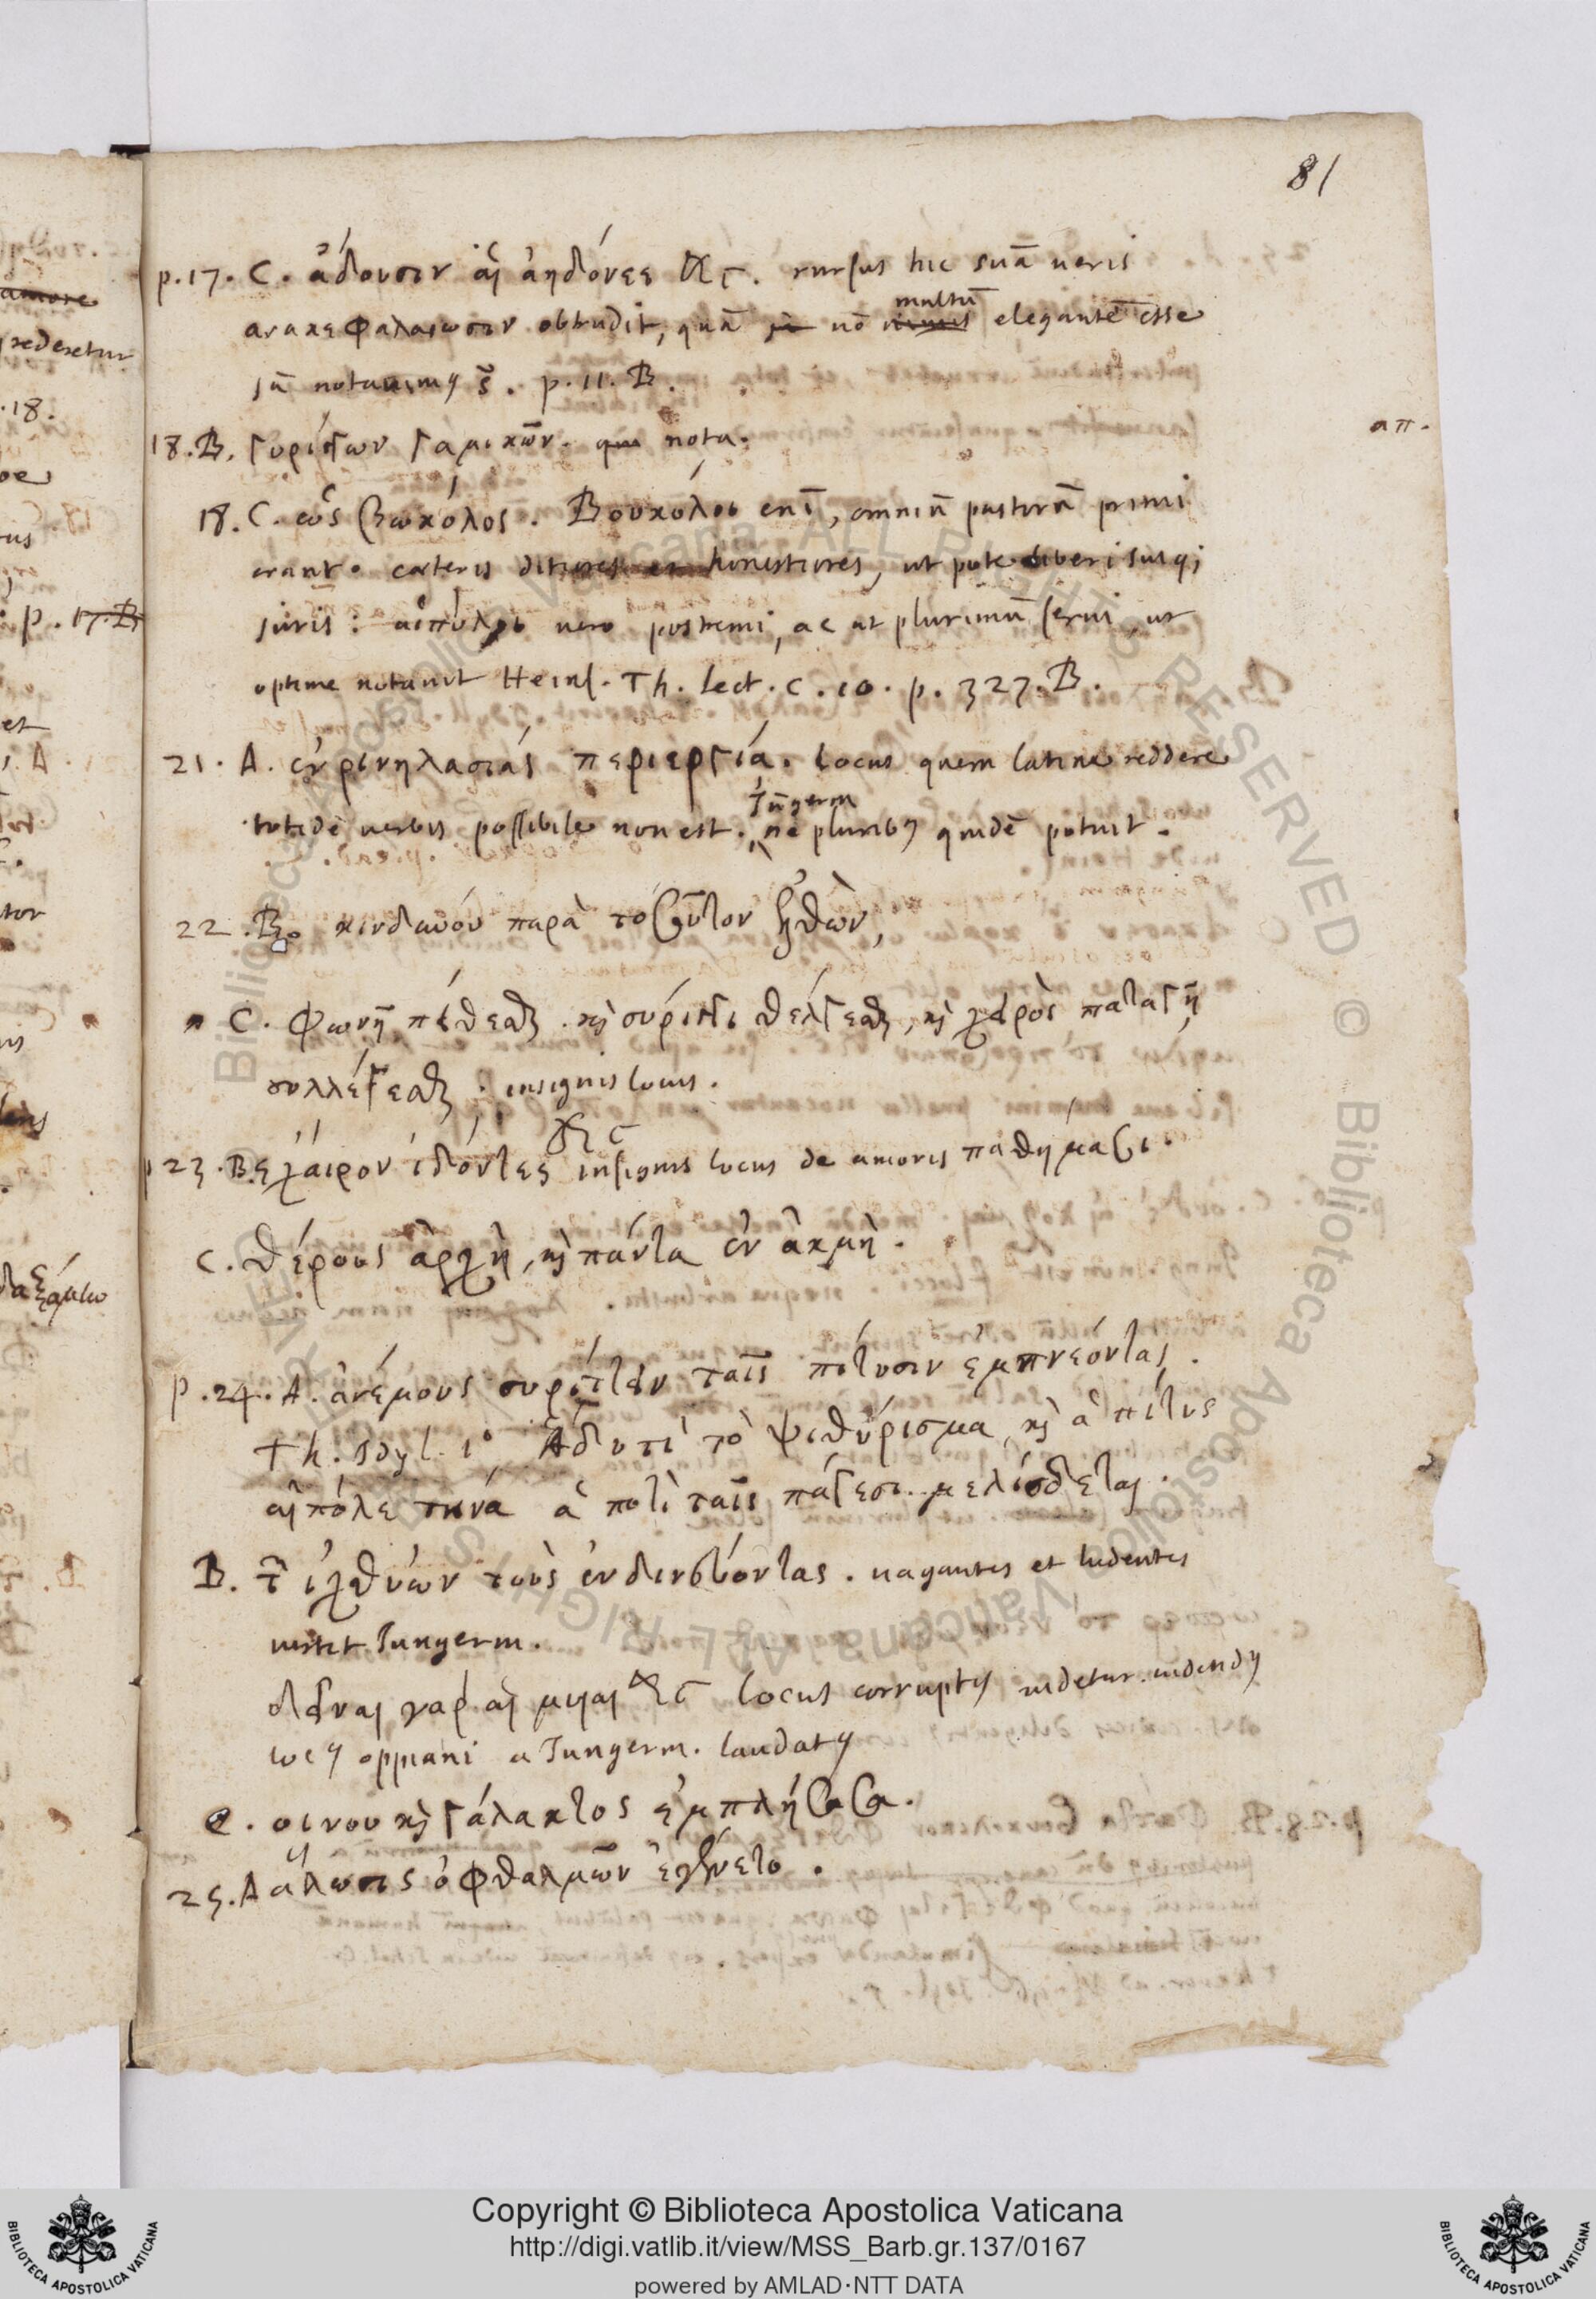 81
p. 17. C. ἄδουσιν αἱ ἀηδόνες &c. rursus hic suā ueris
ανακεφαλαιωσιν obtrudit, quā nō multū elegantē esse
iā notauimus s. p. 11. B.
18. B. συρίγγων γαμικῶν. nota.
18. C. ὡς βωκόλος. Βουκόλοι enī, omniū pastorū primi
erant. cæteris ditiores et honestiores, ut pote liberi suiq;
iuris: αἰπόλοι uero postremi, ac ut plurimū serui, ut
optime notauit Heins. Th. Lect. c. 10. p. 327. B.
21. A. ἐν ῥινηλασίας περιεργίᾳ. Locus quem latine reddere
totidē uerbis possibile non est. Iūgerm ne pluribus quidē potuit.
22. B. κινδαυόυ παρὰ τοσοῦτον ἦλθον,
C. φωνῇ πείθεσθαι. καὶ σύριγγι θέλγεσθαι, καὶ χειρὸς παταγῇ
συλλέγεσθαι: insignis locus.
p 23. B. ἔχαιρον ἰδόντες &c insignis locus de amoris παθήμασι.
C. θέρους ἀρχὴ, καὶ πάντα ἐν ἀκμῇ.
p. 24. A. ἀνέμους συρίττειν ταῖς πίτυσιν ἐμπνέοντας.
Th. Idyl. 1° Ἁδύ τι τὸ ψιθύρισμα, καὶ ἁ πίτυς
αἰπόλε τηνά ἁ ποτὶ ταῖς παγαῖσι μελίσδεται.
B. τ ἰχθύων τοὺς ἐνδινεύοντας. uagantes et ludentes
uertit Iungerm.
δειναὶ γαρ αἱ &c Locus corruptus uidetur. uidendus
locus oppiani a Iungerm. laudatus
C. οινου καὶ γάλακτος ἐμπλήσασα.
25. A ἅλωσις ὀφθαλμῶν ἐγίνετο.
απ.
Copyright © Biblioteca Apostolica Vaticana
http://digi.vatlib.it/view/MSS_Barb.gr.137/0167
powered by AMLAD·NTT DATA
BIBLIOTECA APOSTOLICA VATICANA
BIBLIOTECA APOSTOLICA VATICANA